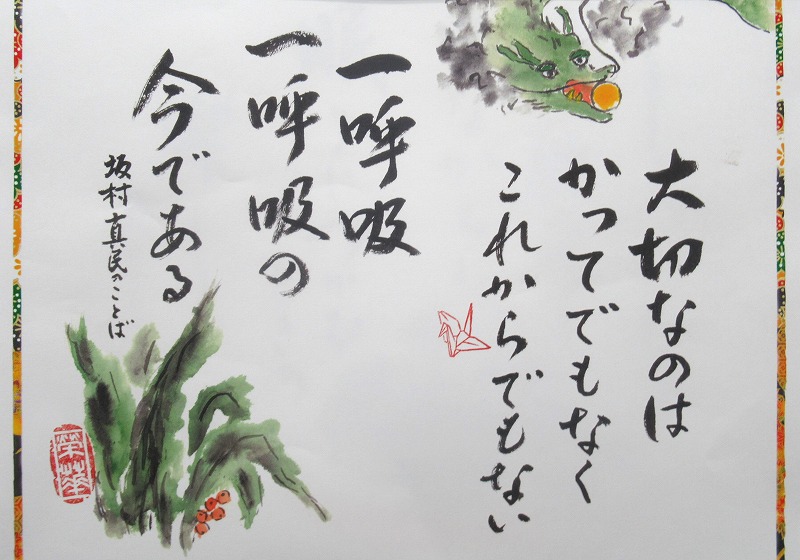 大切なのは
かつてでもなく
これからでもない
一呼吸
一呼吸の
今である
坂村真民のことば